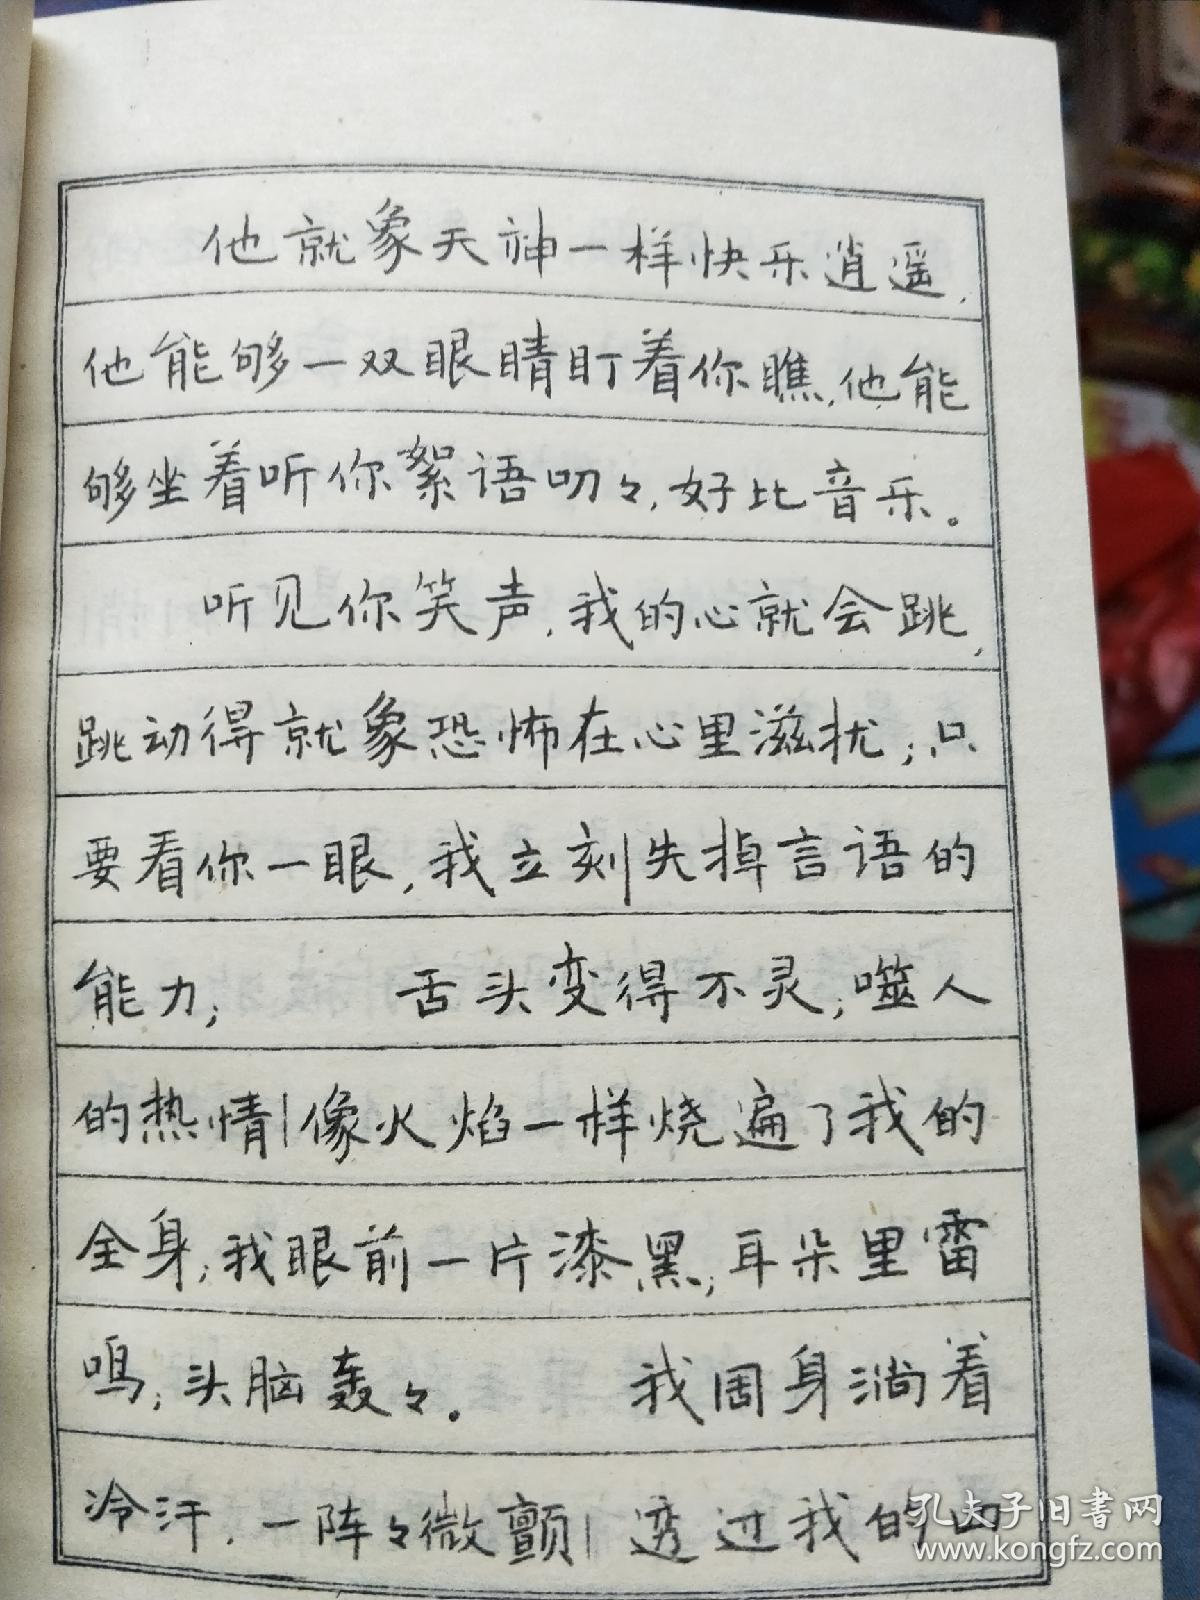 他就象天神一样快乐逍遥,
他能够一双眼睛盯着你瞧,他能
够坐着听你絮语叨々,好比音乐。
听见你笑声,我的心就会跳,
跳动得就象恐怖在心里滋扰;只
要看你一眼,我立刻失掉言语的
能力; 舌头变得不灵;噬人
的热情|像火焰一样烧遍了我的
全身;我眼前一片漆黑;耳朵里雷
鸣;头脑轰々。 我周身淌着
冷汗,一阵々微颤|透过我的四
孔夫子旧書网
www.kongfz.com